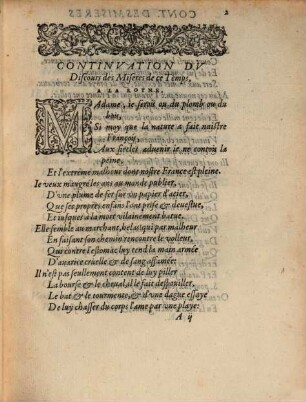 CONTINVATION DV
Discours des Miseres de ce Temps,
A LA ROYNE.
MAdame, ie seroy ou du plomb ou du
boys,
Si moy que la nature a fait naistre
François,
Aux siecles aduenir ie ne contoy la
peine,
Et l'extreme malheur dont nostre France est pleine.
Ie veux maugré les ans au monde publier,
D'vne plume de fer sur vn papier d'acier,
Que ses propres enfans l'ont prise & deuestue,
Et iusques à la mort vilainement batue.
Elle semble au marchant, helas! qui par malheur
En faisant son chemin rencontre le volleur,
Qui contre l'estomaq luy tend la main armée
D'auarice cruelle & de sang affamée:
Il n'est pas seullement content de luy piller
La bourse & le cheual, il le fait despouiller,
Le bat & le tourmente, & d'vne dague essaye
De luy chasser du corps l'ame par vne playe:
A ij